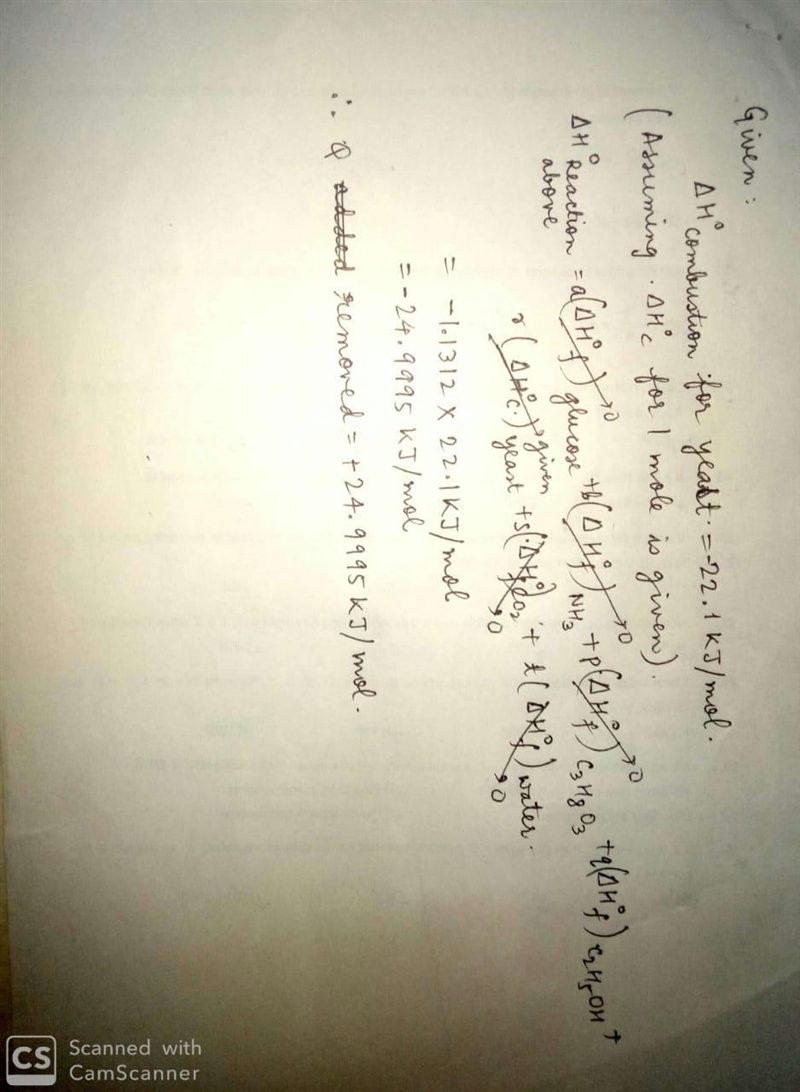 Given :
ΔH°combustion for yeast. = -22.1 KJ/mol.
( Assuming . ΔH°c for 1 mole is given).
ΔH° Reaction above = a(ΔH°f)→0 glucose + b(ΔH°f)→0 NH3 + p(ΔH°f)→0 C3H8O3 + q(ΔH°f) C2H5OH +
r(ΔH°c.)→given yeast + s(ΔH°f)→0 CO2 + t(ΔH°f)→0 water.
= -1.1312 X 22.1 KJ/mol
= -24.9995 KJ/mol
∴ Q added removed = +24.9995 KJ/mol.
CS Scanned with
CamScanner